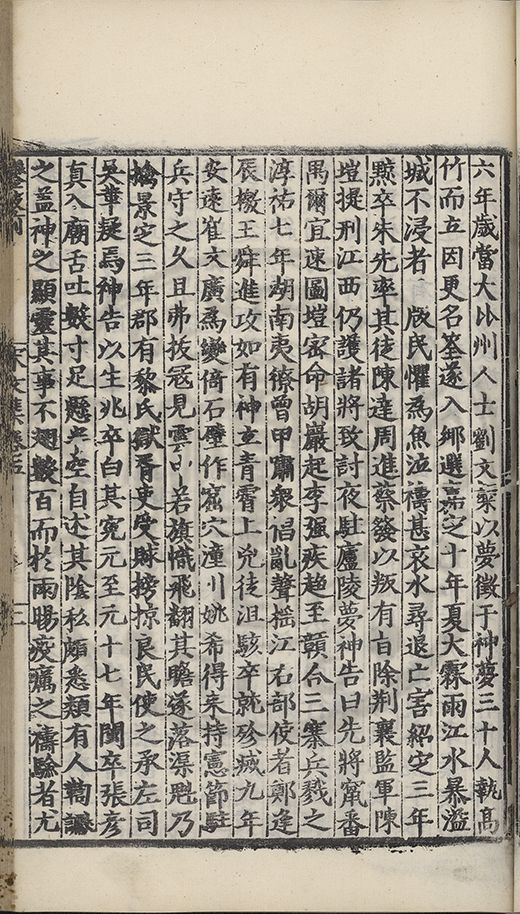 六年歲當大比州人士劉文粲以夢徵于神夢三十人執高
竹而立因更名荃遂入鄉選嘉定十年夏大霖雨江水暴溢
城不浸者一版民懼為魚泣禱甚哀水尋退亡害紹定三年
黥卒朱先率其徒陳達周進蔡發以叛有旨除荆襄監軍陳
塏提刑江西仍護諸將致討夜駐廬陵夢神告曰先將竄番
禺爾宜速圖塏密命胡巖起李强疾趨至贛合三寨兵戮之
淳祐七年湖南夷獠曾甲嘯衆倡亂聲搖江右部使者鄭逢
辰檄王舜進攻如有神立青霄上兇徒沮駭卒就殄滅九年
安遠崔文廣為變倚石壁作窟穴潼川姚希得来持憲節駐
兵守之久且弗拔冦見雲中若旗幟飛翻其瞻遂落渠魁乃
擒景定三年郡有黎氏獄胥吏受賕搒掠良民使之承左司
吳華疑焉神告以生兆卒白其冤元至元十七年閩卒張彦
真入廟舌吐數寸足懸空自述其陰私頗悉類有人鞫讞
之盖神之顯靈其事不翅數百而於雨暘疫癘之禱驗者尤
宋文集卷五